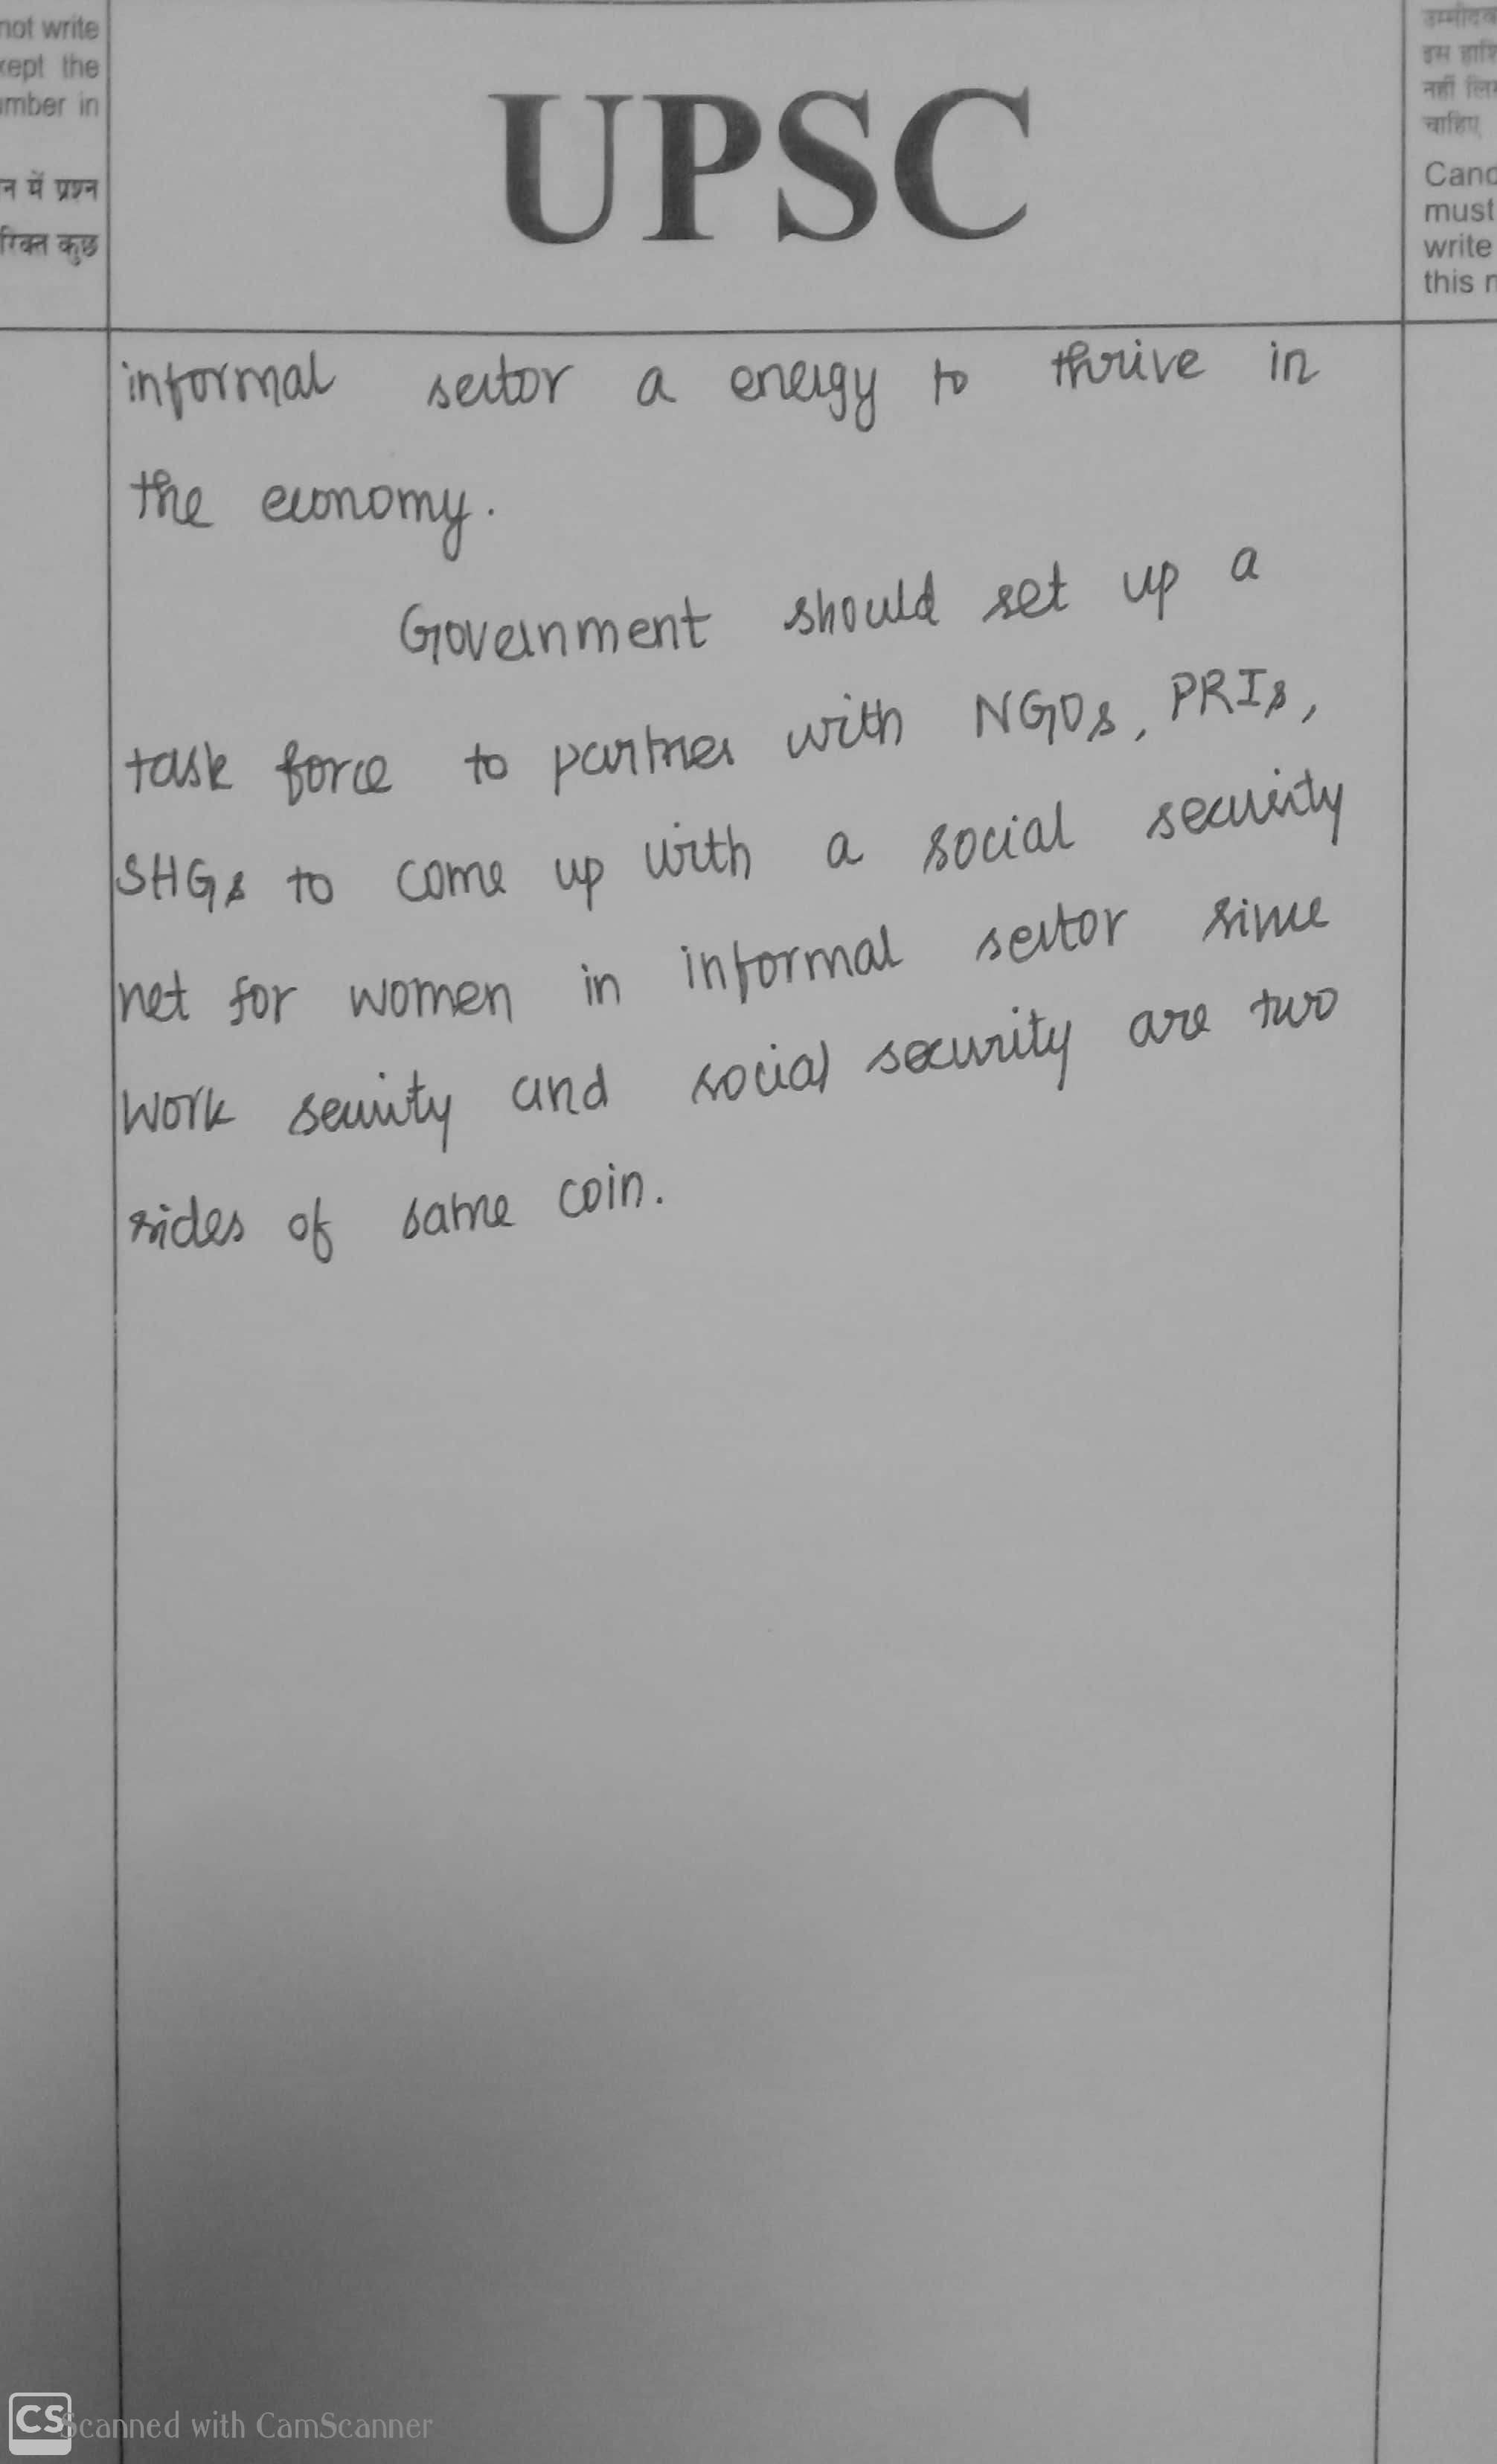 not write
cept the
umber in
न में प्रश्न
रिक्त कुछ
UPSC
उम्मीदव
इस हाशि
नहीं लिख
चाहिए
Canc
must
write
this r
informal sector a energy to thrive in
the economy.
Government should set up a
task force to partner with NGOs, PRIs,
SHGs to come up with a social security
net for women in informal sector since
work security and social security are two
sides of same coin.
CS Scanned with CamScanner